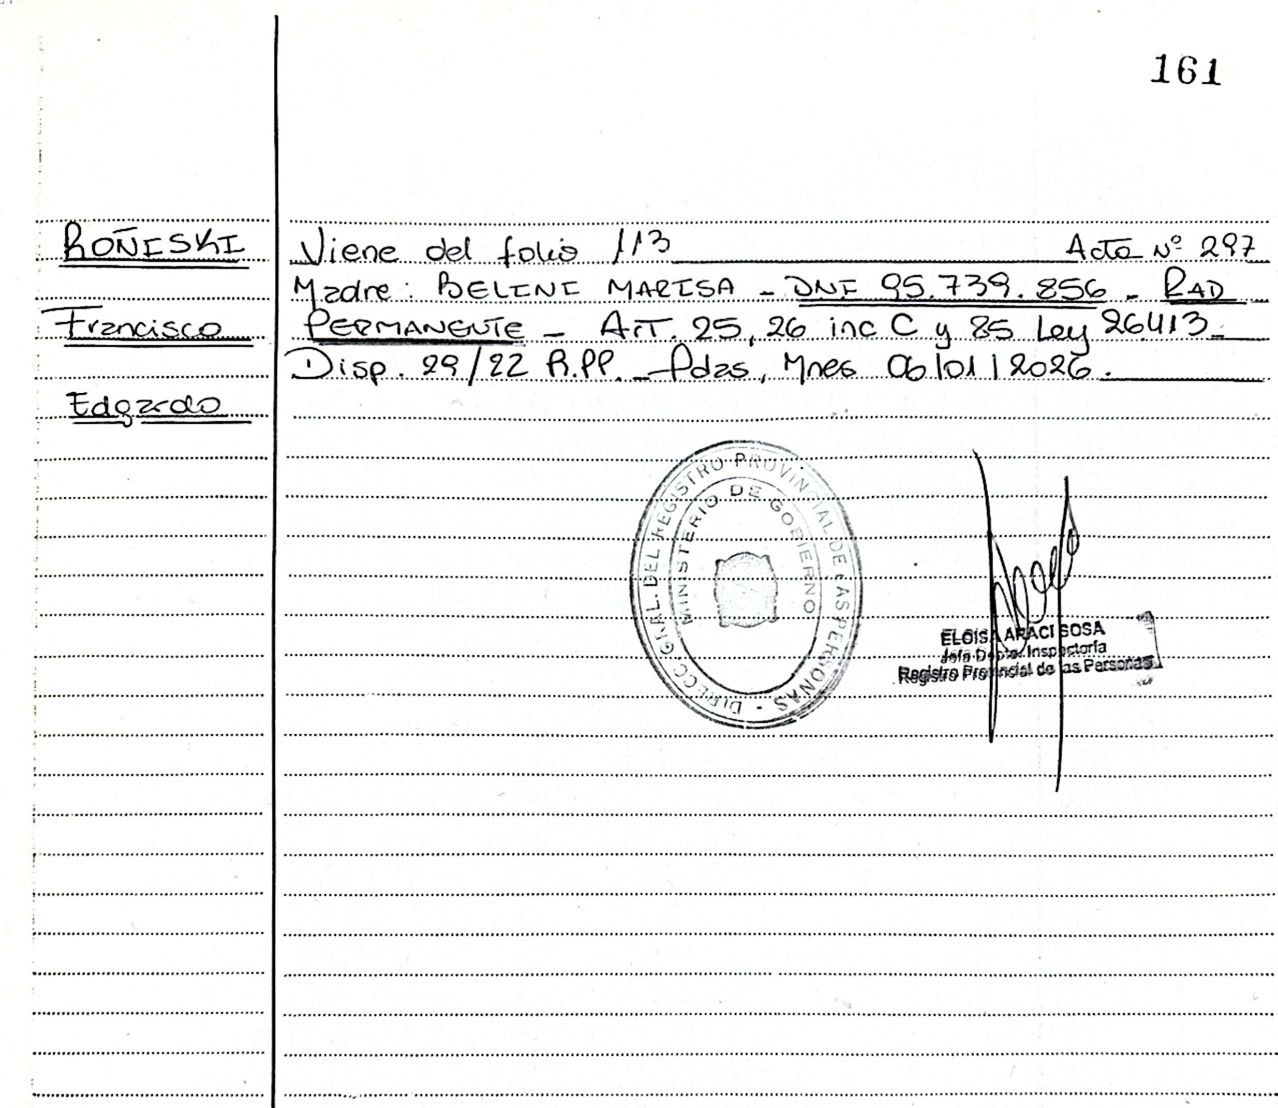 161
ROÑISKI
Francisco
Edgardo
Viene del folio 113 Acta Nº 297
Madre: BELINI MARISA - DNI 95.739.856 - RAD
PERMANENTE - ART. 25, 26 inc C y 85 Ley 26413_
Disp. 29/22 R.PP. - Pdas, Mnes 06/01/2026.
DIRECC. GRAL. DEL REGISTRO PROVINCIAL DE LAS PERSONAS -
MINISTERIO DE GOBIERNO
ELOISA ARACI SOSA
Jefa Depto. Inspectoría
Registro Provincial de las Personas